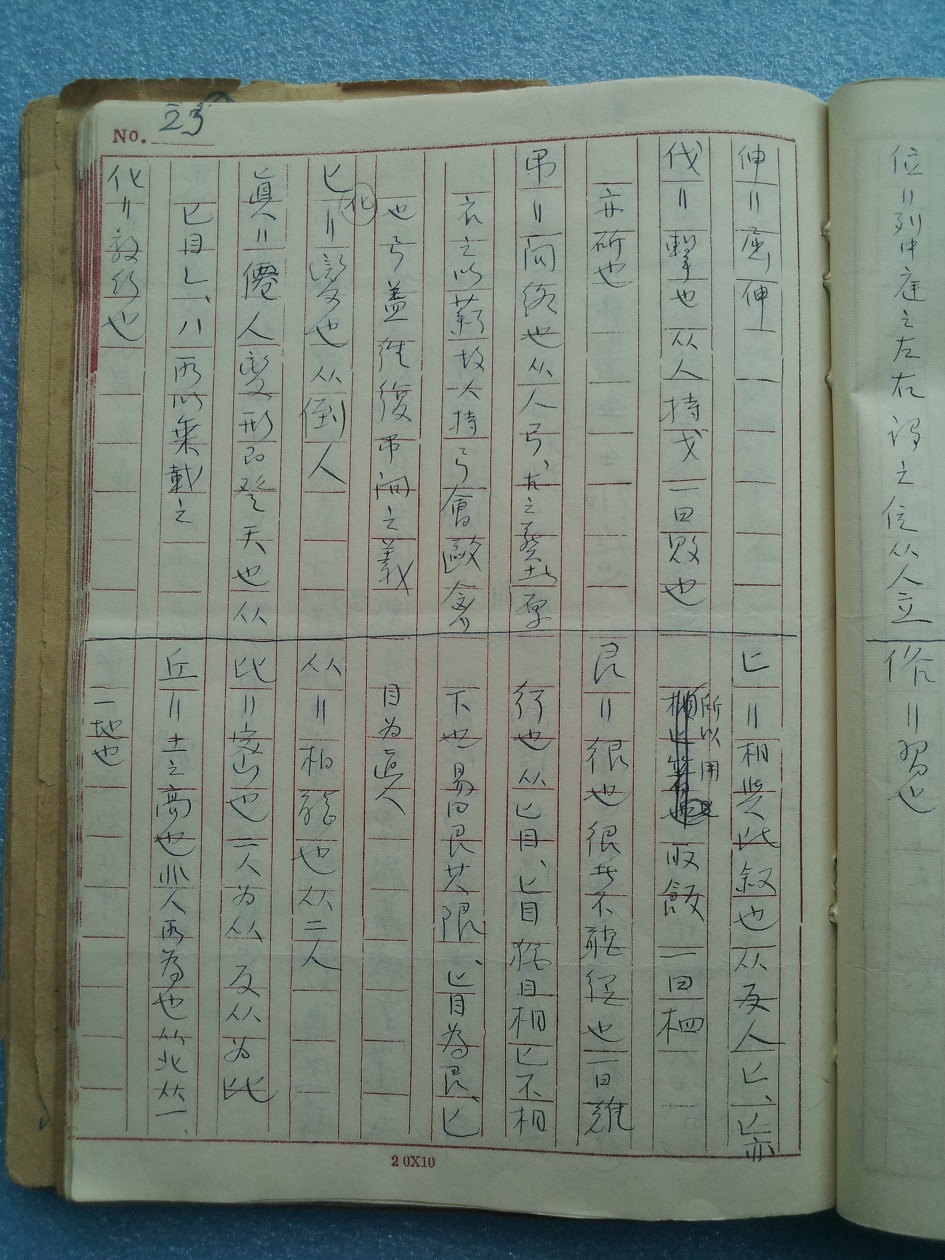 位=列中庭之左右謂之位从人立
俗=習也
No. 23
伸=屈伸
伐=擊也从人持戈一曰敗也
亦斫也
弔=问終也从人弓、古之葬者厚
衣之以薪故人持弓會敺禽
也弓盖往復弔问之義
匕=變也从倒人
化
眞=僊人變形而登天也从
匕目乚、八所以乗載之
化=教行也
匕=相與比叙也从反人匕、匕亦
所以用匕取飯一曰柶
艮=很也很者不聽從也一曰難
行也从匕目、匕目猶目相匕不相
下也易曰艮其限、匕目為艮、匕
目为眞
从=相聽也从二人
比=密也二人为从反从为比
丘=土之高也非人所為也从北从一、
一地也
20X10